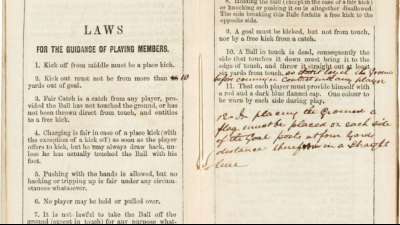 LAWS
FOR THE GUIDANCE OF PLAYING MEMBERS.
1. Kick off from middle must be a place kick.
2. Kick out must not be from more than 10
yards out of goal.
3. Fair Catch is a catch from any player, pro-
vided the Ball has not touched the ground, or has
not been thrown direct from touch, and entitles
to a free kick.
4. Charging is fair in case of a place kick (with
the exception of a kick off) as soon as the player
offers to kick, but he may always draw back, un-
less he has actually touched the Ball with his
foot.
5. Pushing with the hands is allowed, but no
hacking or tripping up is fair under any circum-
stances whatsoever.
6. No player may be held or pulled over.
7. It is not lawful to take the Ball off the
ground (except in touch) for any purpose what-
the Ball (except in the case of a fair kick)
or knocking or pushing it on is altogether disallowed.
The side breaking this Rule forfeits a free kick to the
opposite side.
9. A goal must be kicked, but not from touch,
nor by a free kick from a catch.
10. A Ball in touch is dead, consequently the
side that touches it down must bring it to the
edge of touch, and throw it straight out at least
yards from touch,
11. That each player must provide himself with
a red and a dark blue flannel cap. One colour to
be worn by each side during play.
In placing the Ground a
flag must be placed on each side
of the Goal posts at four yards
distance therefrom in a straight
line